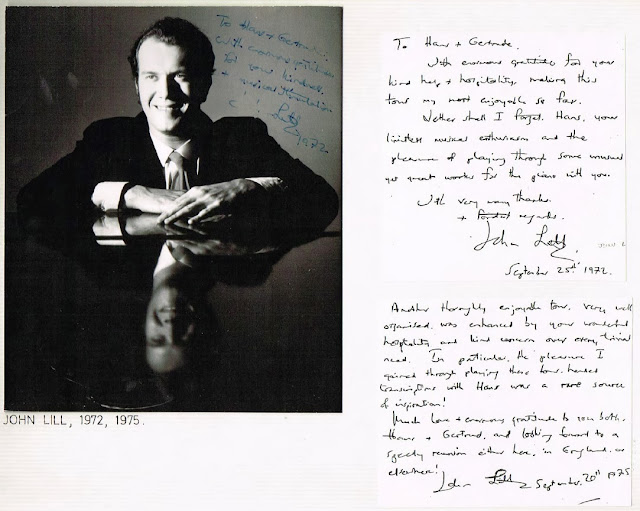 To Hans + Gertrude.
with enormous gratitude
for your kindness
+ musical
John Lill
1972
JOHN LILL, 1972, 1975.
To Hans + Gertrude.
With enormous gratitude for your
kind help + hospitality, making this
tour my most enjoyable so far.
Neither shall I forget, Hans, your
limitless musical enthusiasm and the
pleasure of playing through some unusual
yet great works for the piano with you.
With very many thanks
+ fondest regards.
John Lill
September 25th 1972.
Another thoroughly enjoyable tour, very well
organised, was enhanced by your wonderful
hospitality and kind concern over every trivial
need. In particular, the pleasure I
gained through playing these four-handed
transcriptions with Hans was a rare source
of inspiration!
Much love + enormous gratitude to you both,
Hans + Gertrud, and looking forward to a
speedy reunion either here, in England, or
elsewhere!
John Lill September 20th 1975